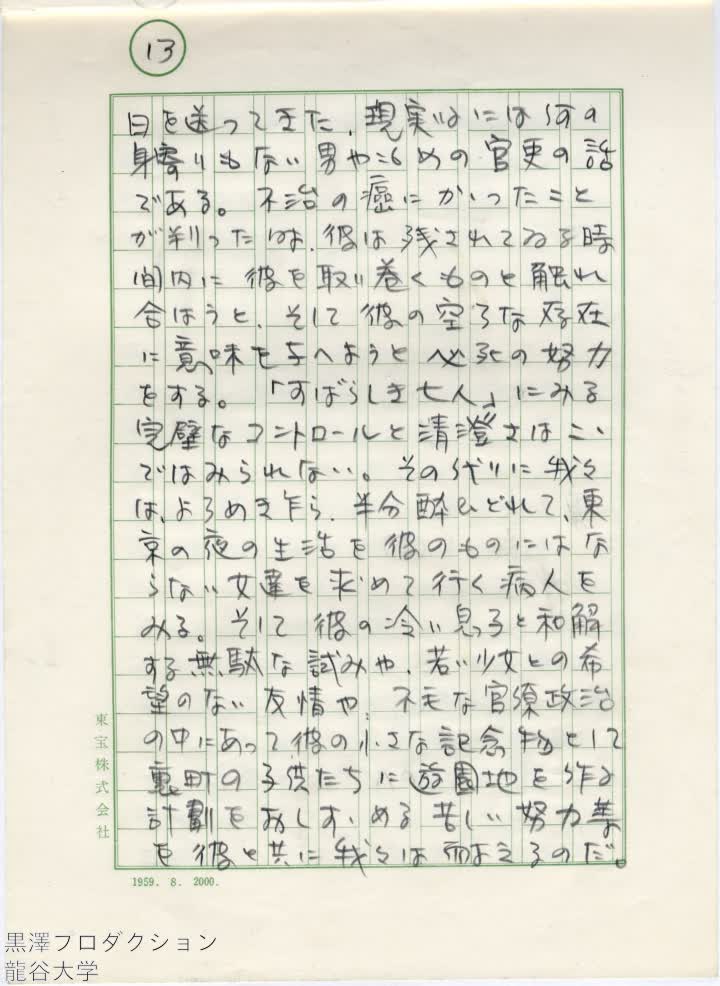 13
日を送ってきた、現実的には何の
身寄りもない男やもめの官吏の話
である。不治の癌にかかったこと
が判った時、彼は残されてゐる時
間内に彼を取り巻くものと触れ
合はうと、そして彼の空ろな存在
に意味を与へようと必死の努力
をする。「すばらしき七人」にみる
完璧なコントロールと清澄さはここ
ではみられない。その代りに我々
は、よろめき乍ら、半分酔ひどれて、東
京の夜の生活を彼のものにはな
らない女達を求めて行く病人を
みる。そして彼の冷い息子と和解
する無駄な試みや、若い少女との希
望のない友情や、不毛な官僚政治
の中にあって彼の小さな記念物として
裏町の子供たちに遊園地を作る
計劃をおしすゝめる苦しい努力等
を彼と共に我々は耐えるのだ。
東宝株式会社
1959. 8. 2000.
黒澤プロダクション
龍谷大学